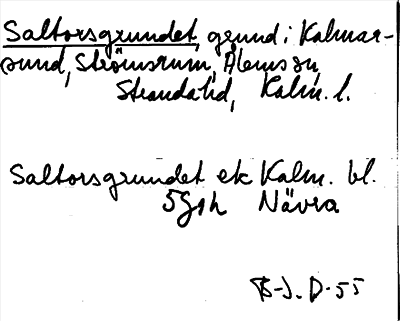 Saltorsgrundet, grund i Kalmar-
sund, Strömsrum, Ålems sn,
Strandahd, Kalm. l.
Saltorsgrundet ek Kalm. bl.
5G9h Nävra
B-J. D-55